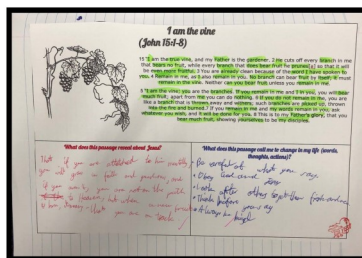 I am the vine
(John 15:1-8)
15 "I am the true vine, and my Father is the gardener. 2 He cuts off every branch in me
that bears no fruit, while every branch that does bear fruit he prunes[a] so that it will
be even more fruitful. 3 You are already clean because of the word I have spoken to
you. 4 Remain in me, as I also remain in you. No branch can bear fruit by itself; it must
remain in the vine. Neither can you bear fruit unless you remain in me.
5 "I am the vine; you are the branches. If you remain in me and I in you, you will bear
much fruit; apart from me you can do nothing. 6 If you do not remain in me, you are
like a branch that is thrown away and withers; such branches are picked up, thrown
into the fire and burned. 7 If you remain in me and my words remain in you, ask
whatever you wish, and it will be done for you. 8 This is to my Father's glory, that you
bear much fruit, showing yourselves to be my disciples.
What does this passage reveal about Jesus?
That if you are to him
you will you in faith and and
if you you are not on the path
to Heaven, but when
that you are on
What does this passage call me to change in my life (words,
thoughts, actions)?
• Be careful of what you say
• Obey
• Look after other
• Think before you say
• Always be